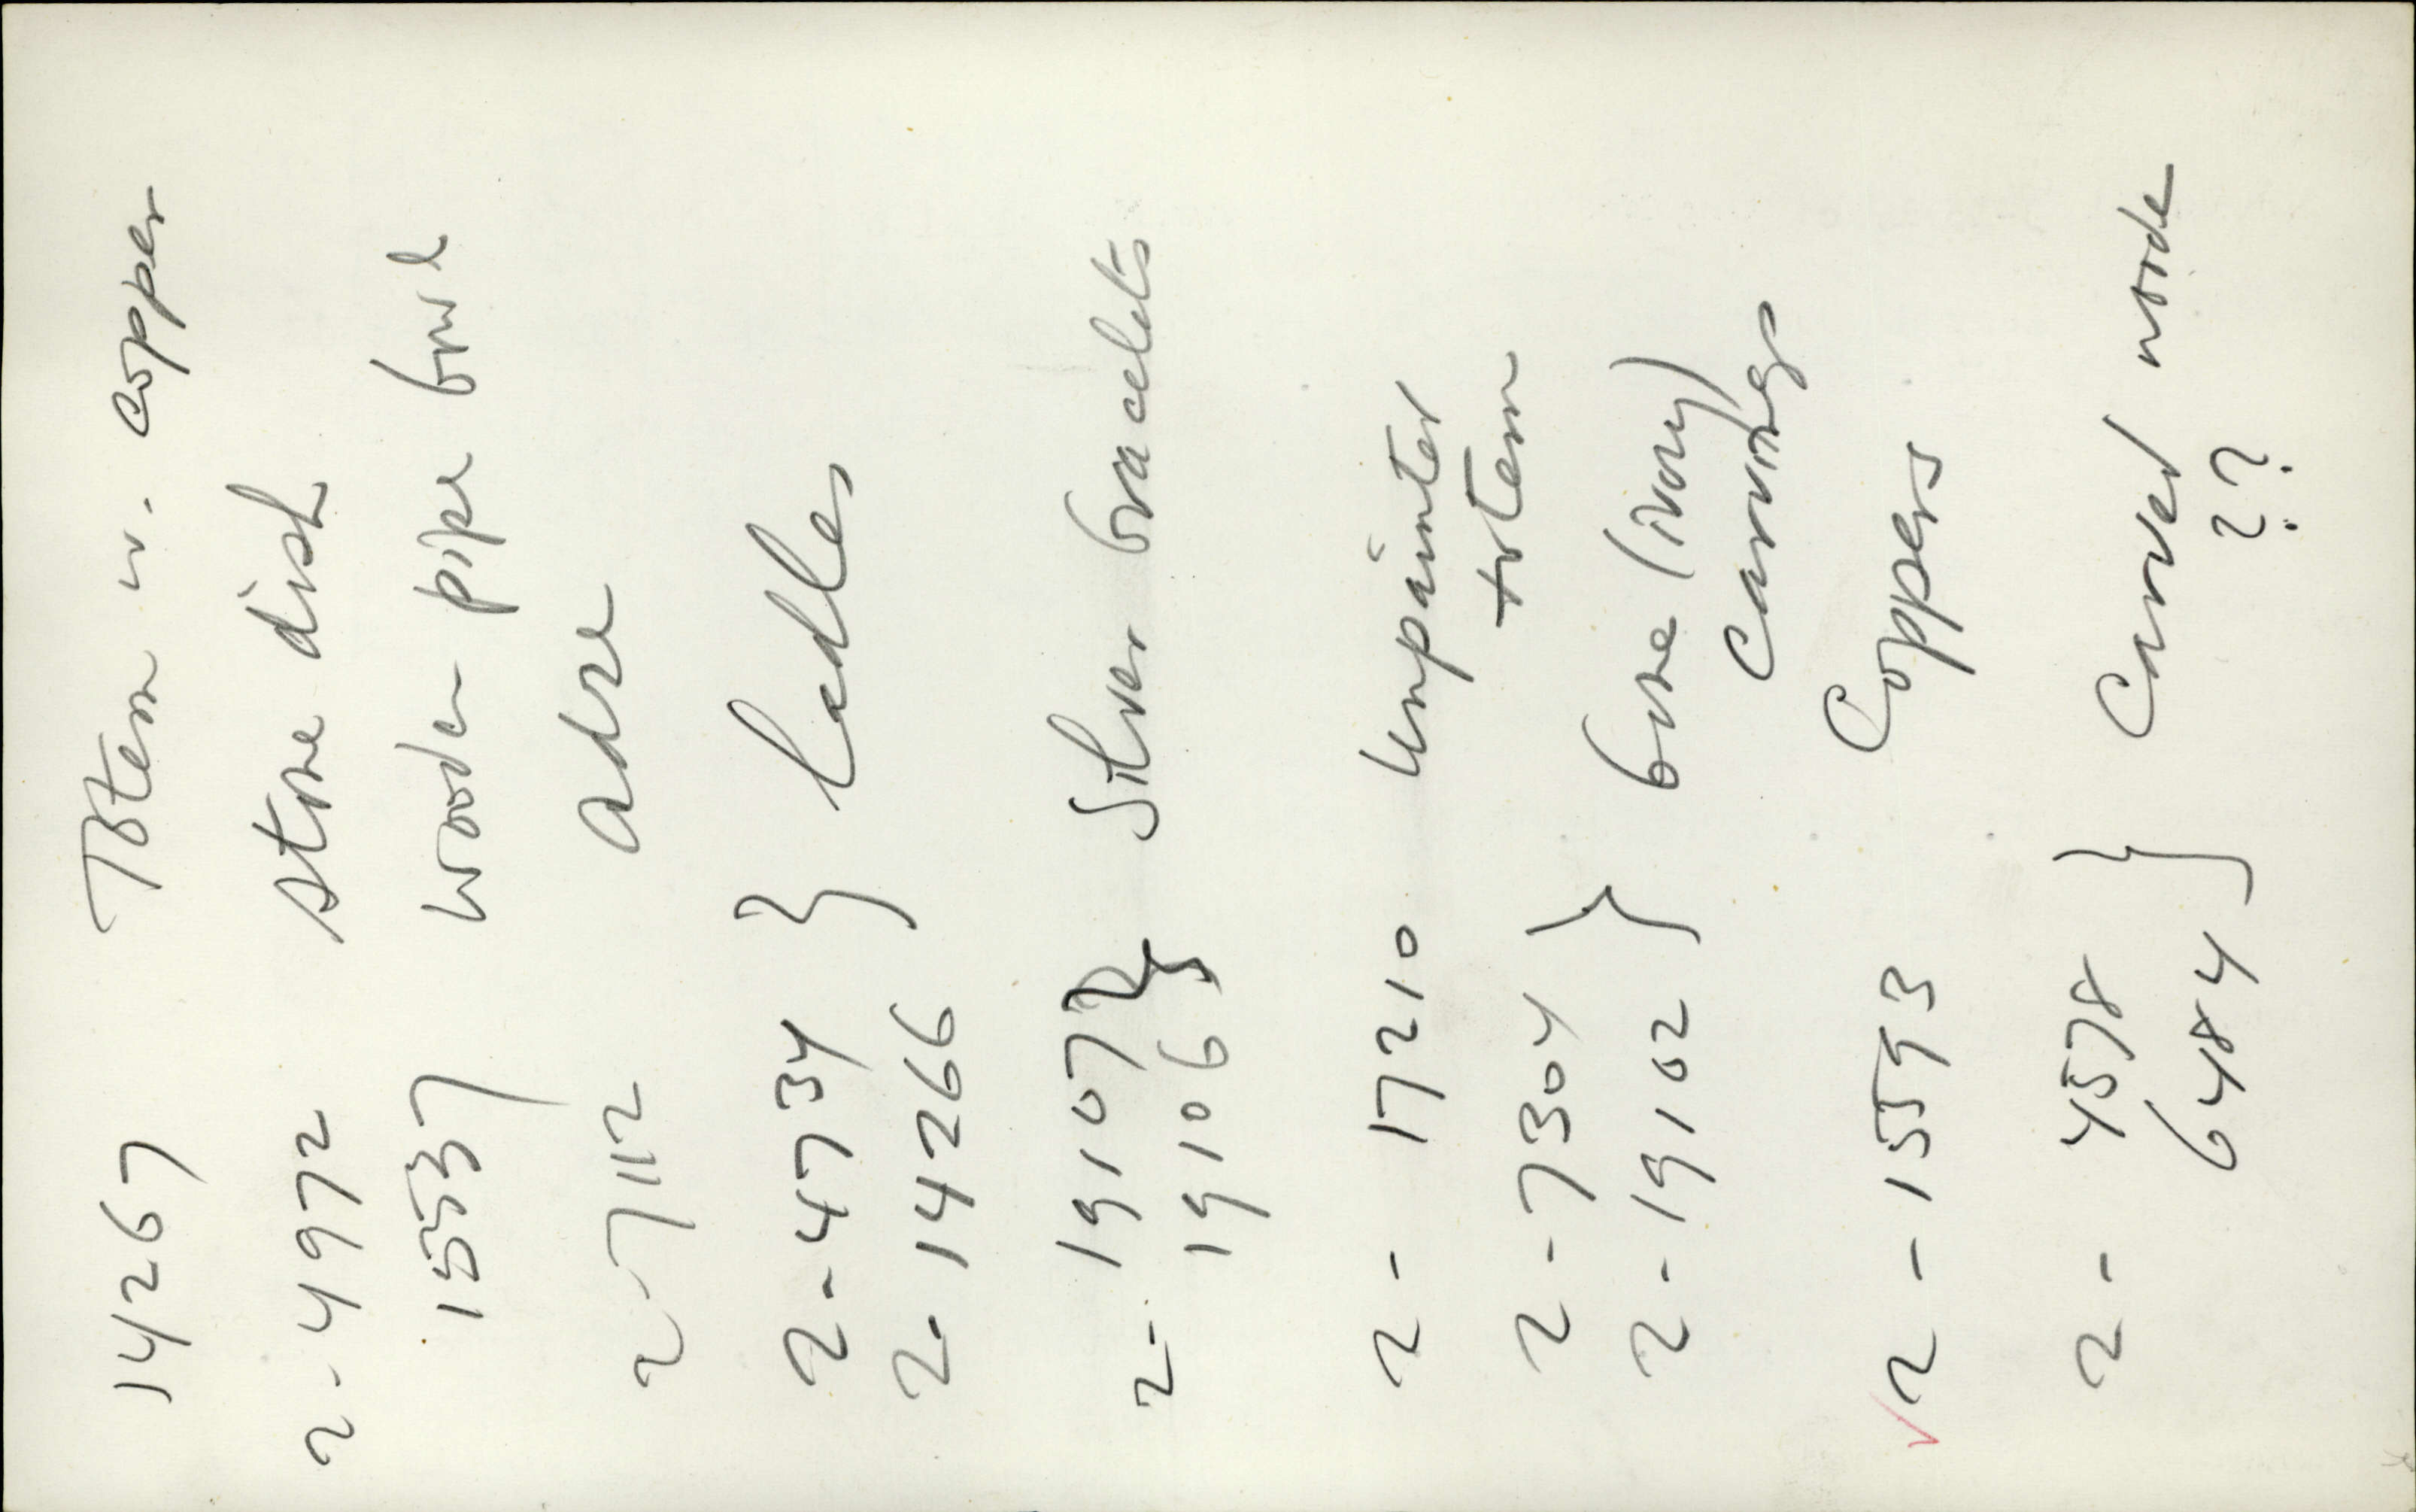 14267 Totem w. copper
2-4972 stone dish
15537 wooden pipe bowl
2-7112 adze
2-4734 } ladles
2-14266
2- 19107 } Silver bracelets
19106
2- 17210 unpainted
totem
2-7304 } bone (ivory)
2-19102 carvings
2-15593 Coppers
2- 4578 } Carved
6484 ??